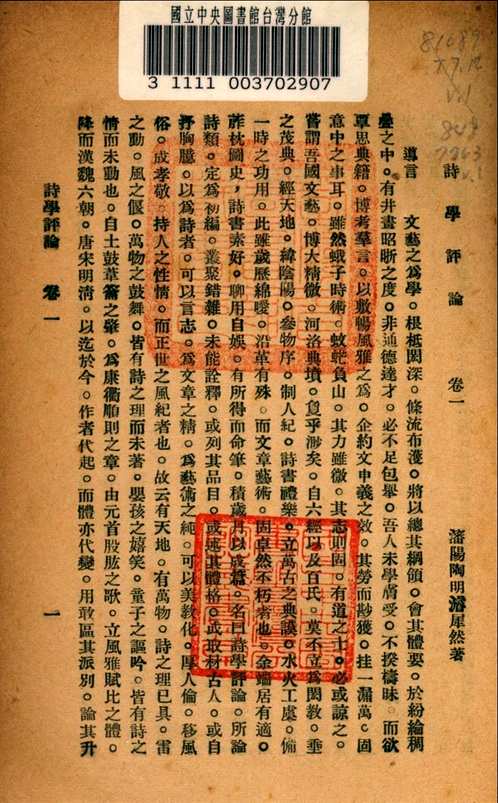 國立中央圖書館台灣分館
3 1111 003702907
詩學評論 卷一
瀋陽陶明濬犀然著
導言 文藝之爲學。根柢閎深。條流布濩。將以總其綱領。會其體要。於紛綸稠
疊之中。有井晝昭晰之度。非通德達才。必不足包舉。吾人末學膚受。不揆檮昧。而欲
覃思典籍。博考羣言。以敷暢風雅之爲。企約文申義之效。其勞而尠獲。挂一漏萬。固
意中之事耳。雖然蛾子時術。蚊虻負山。其力雖微。其志則固。有道之士。必或諒之。
嘗謂吾國文藝。博大精微。河洛典墳。敻乎渺矣。自六經以及百氏。莫不立爲閎教。垂
之茂典。經天地。緯陰陽。參物序。制人紀。詩書禮樂。立萬古之典謨。水火工虞。備
一時之功用。此雖歲歷綿曖。沿革有殊。而文章藝術。固卓然不朽者也。余端居有適。
詐枕圖史。詩書素好。聊用自娛。有所得而命筆。積歲月以成篇。名曰詩學評論。所論
詩類。定爲初編。叢聚錯雜。未能詮釋。或列其品目。或述其體格。或取材古人。或自
抒胸臆。以爲詩者。可以言志。爲文章之精。爲藝術之純。可以美教化。厚人倫。移風
俗。成孝敬。持人之性情。而正世之風紀者也。故云有天地。有萬物。詩之理已具。雷
之動。風之偃。萬物之鼓舞。皆有詩之理而未著。嬰孩之嬉笑。童子之謳吟。皆有詩之
情而未動也。自土鼓葦籥之肇。爲康衢順則之章。由元首股肱之歌。立風雅賦比之體。
降而漢魏六朝。唐宋明淸。以迄於今。作者代起。而體亦代變。用敢區其派別。論其升
詩學評論 卷一 一